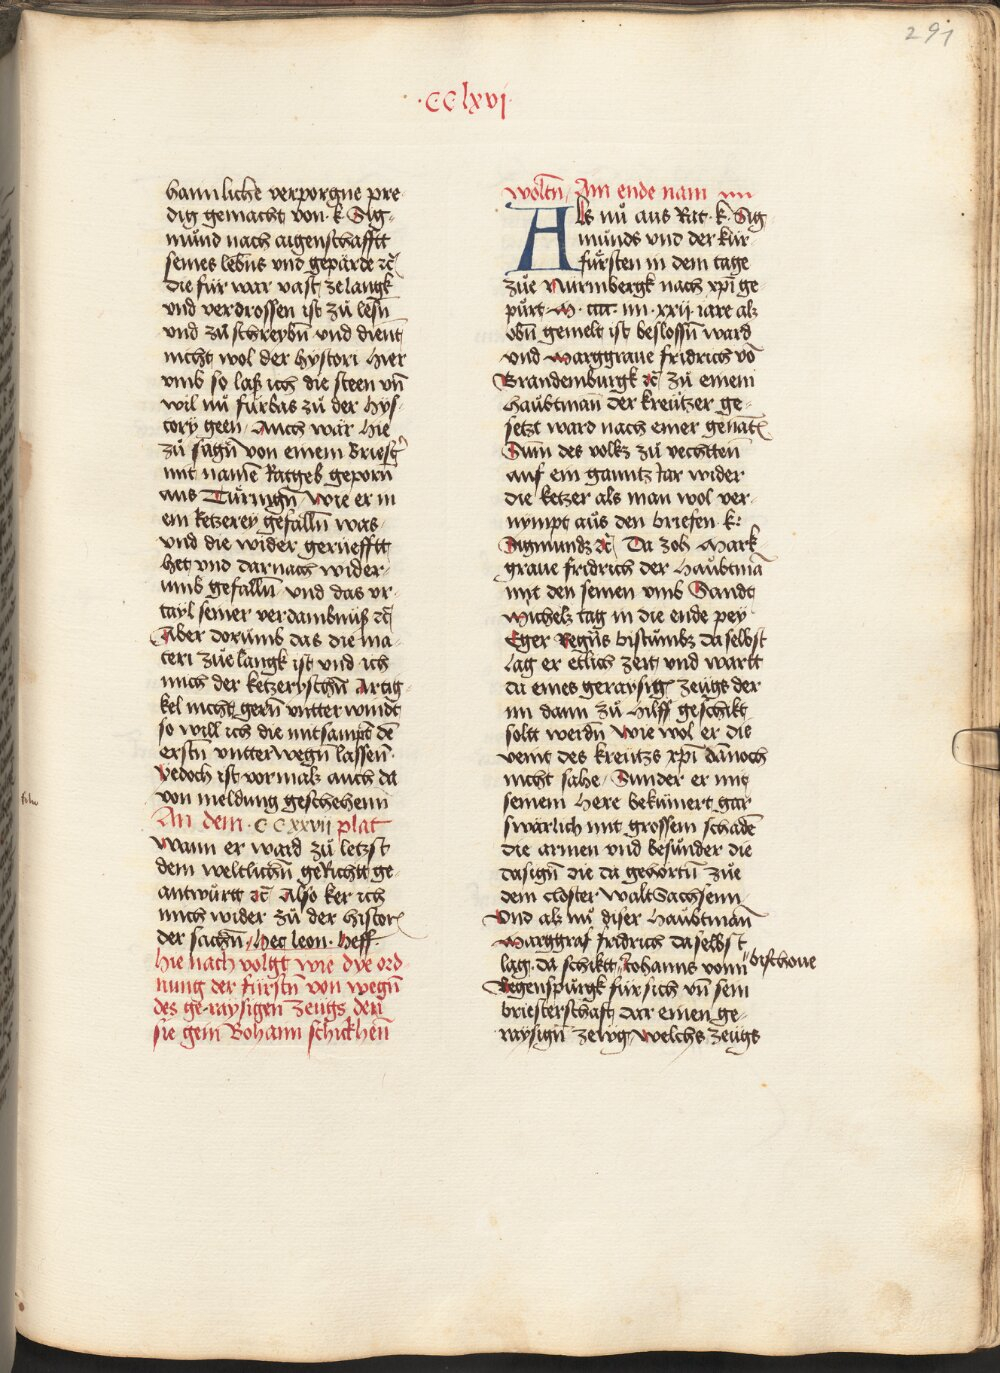 291
·CClxvj·
hannliche verporgne pre-
dig gemacht von k. Sig-
mund nach aigenschafftt
seines lebns und gepärde ꝛc̃
die für war vast ze langk
und verdrossen ist zů lesn̄
und zů schreybn̄ und dient
nicht wol der hystori hier
umb so laß ich die steen un̄
wil nů fürbas zů der hys-
tory geen / Auch wär hie
zů sagn̄ von einem briest̕
mit namē Ratgeb geporn̄
aus Türingn̄ wie er in
ein ketzerey gefalln̄ was
und die wider gerüefftt
het und darnach wider-
umb gefalln̄ und das ur-
tayl seiner verdambnüß ꝛc̃
Aber dorumb das die ma-
teri züe langk ist und ich
mich der ketzeryschn̄ Artig-
kel nicht gern̄ untter windt
so will ich die mitsampt dē
erstn̄ untter wegn̄ lassen̄
yedoch ist vormalz auch da
von meldung geschehenn
An dem · CCxxvii plat
wann er ward zů letzst
dem weltlichn̄ geRichtt ge-
antwürtt ꝛc̃ Also ker ich
mich wider zů der histori
der sachn̄ / hec leon. heff.
hie nach volgt wie dye ord
nung der fürstn̄ von wegn̄
des ge-raysigen zeugs den̄
sie gein Bohann schickhen̄
woltn̄ / Ain ende nam
Als nů aus Rat. k. Sig
munds und der kür-
fürsten in dem tage
züe Nürmbergk nach xp̄i ge-
pürt M. cccc. xxii. iare alz
obn̄ gemelt ist beslossn̄ ward
und marggraue fridrich vō
Brandemburgk ꝛc̃ zů einem
haübtman̄ der kreützer ge-
setzt ward nach einer genāt
Sum des volks zů vechtten̄
auf ein gauntz Jar wider
die ketzer als man wol ver-
nympt aůs den briefen k:
Sigmundz ꝛc̃ / Da zoh Mark
graue fridrich der haübtmā
mit den seinen umb Sandt
michelz tag in die ende pey
Eger Regn̄s bistumbz daselbst
lag er etlich zeit und wartt
da eines geraysig zeugs der
im dann zů hilff geschikt
soltt werdn̄ wie wol er die
veint des kreutzs xp̄i dānoch
nicht sahe / Sunder er mit
seinem here bekümert gar
swärlich mit grossem schadē
die armen und besůnder die
dasign̄ die da gehortn̄ züe
dem closter walt Sachsenn
Und alz nů diser haübtman̄
Marggraf fridrich daselbst
lag. da schiktt Johanns vonn "bischoue
Regenspürgk für sich un̄ sein
briesterschaft dar einen ge-
raysign̄ zewg / welchs zeugs